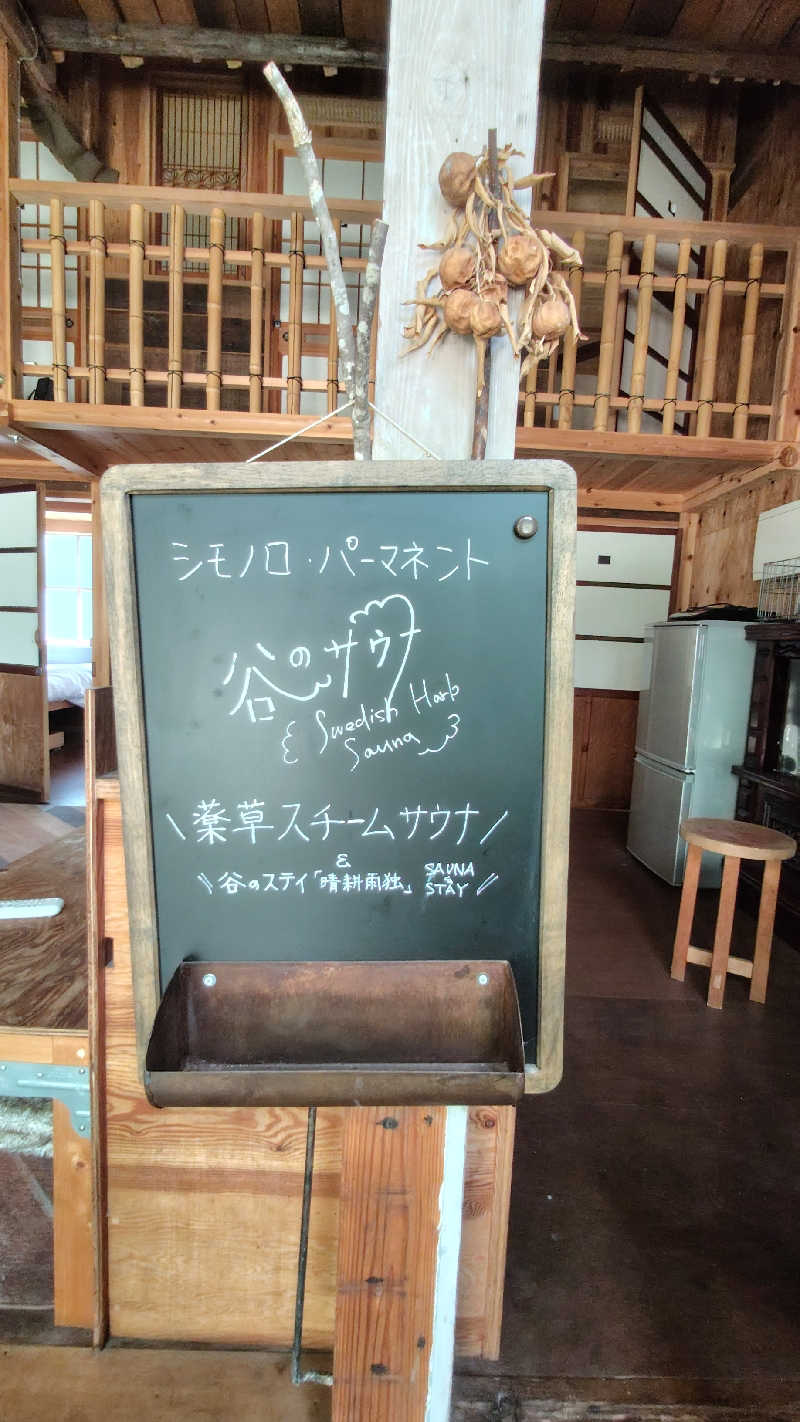 シモノロ・パーマネント
谷のサウナ
Swedish Harb
Sauna
\薬草スチームサウナ/
&
\\谷のステイ「晴耕雨独」SAUNA & STAY//